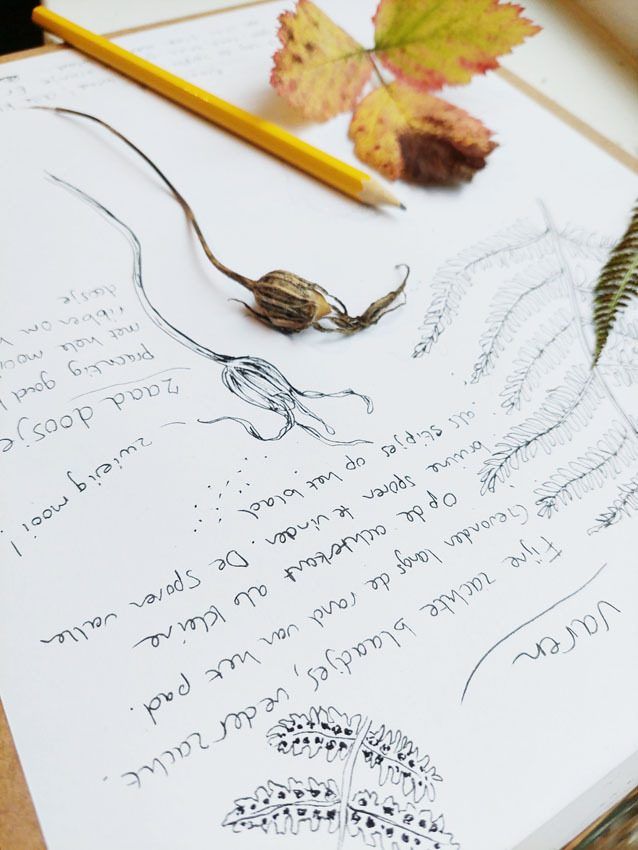 Varen
Fijne zachte blaadjes, veder zacht.
Gevonden langs de rand van het pad.
Op de achterkant als kleine
bruine sporen te vinden. De sporen vallen
als stipjes op het blad
zwierig mooi!
zaad doosje
prachtig goud
met hele
ribben om
doosje